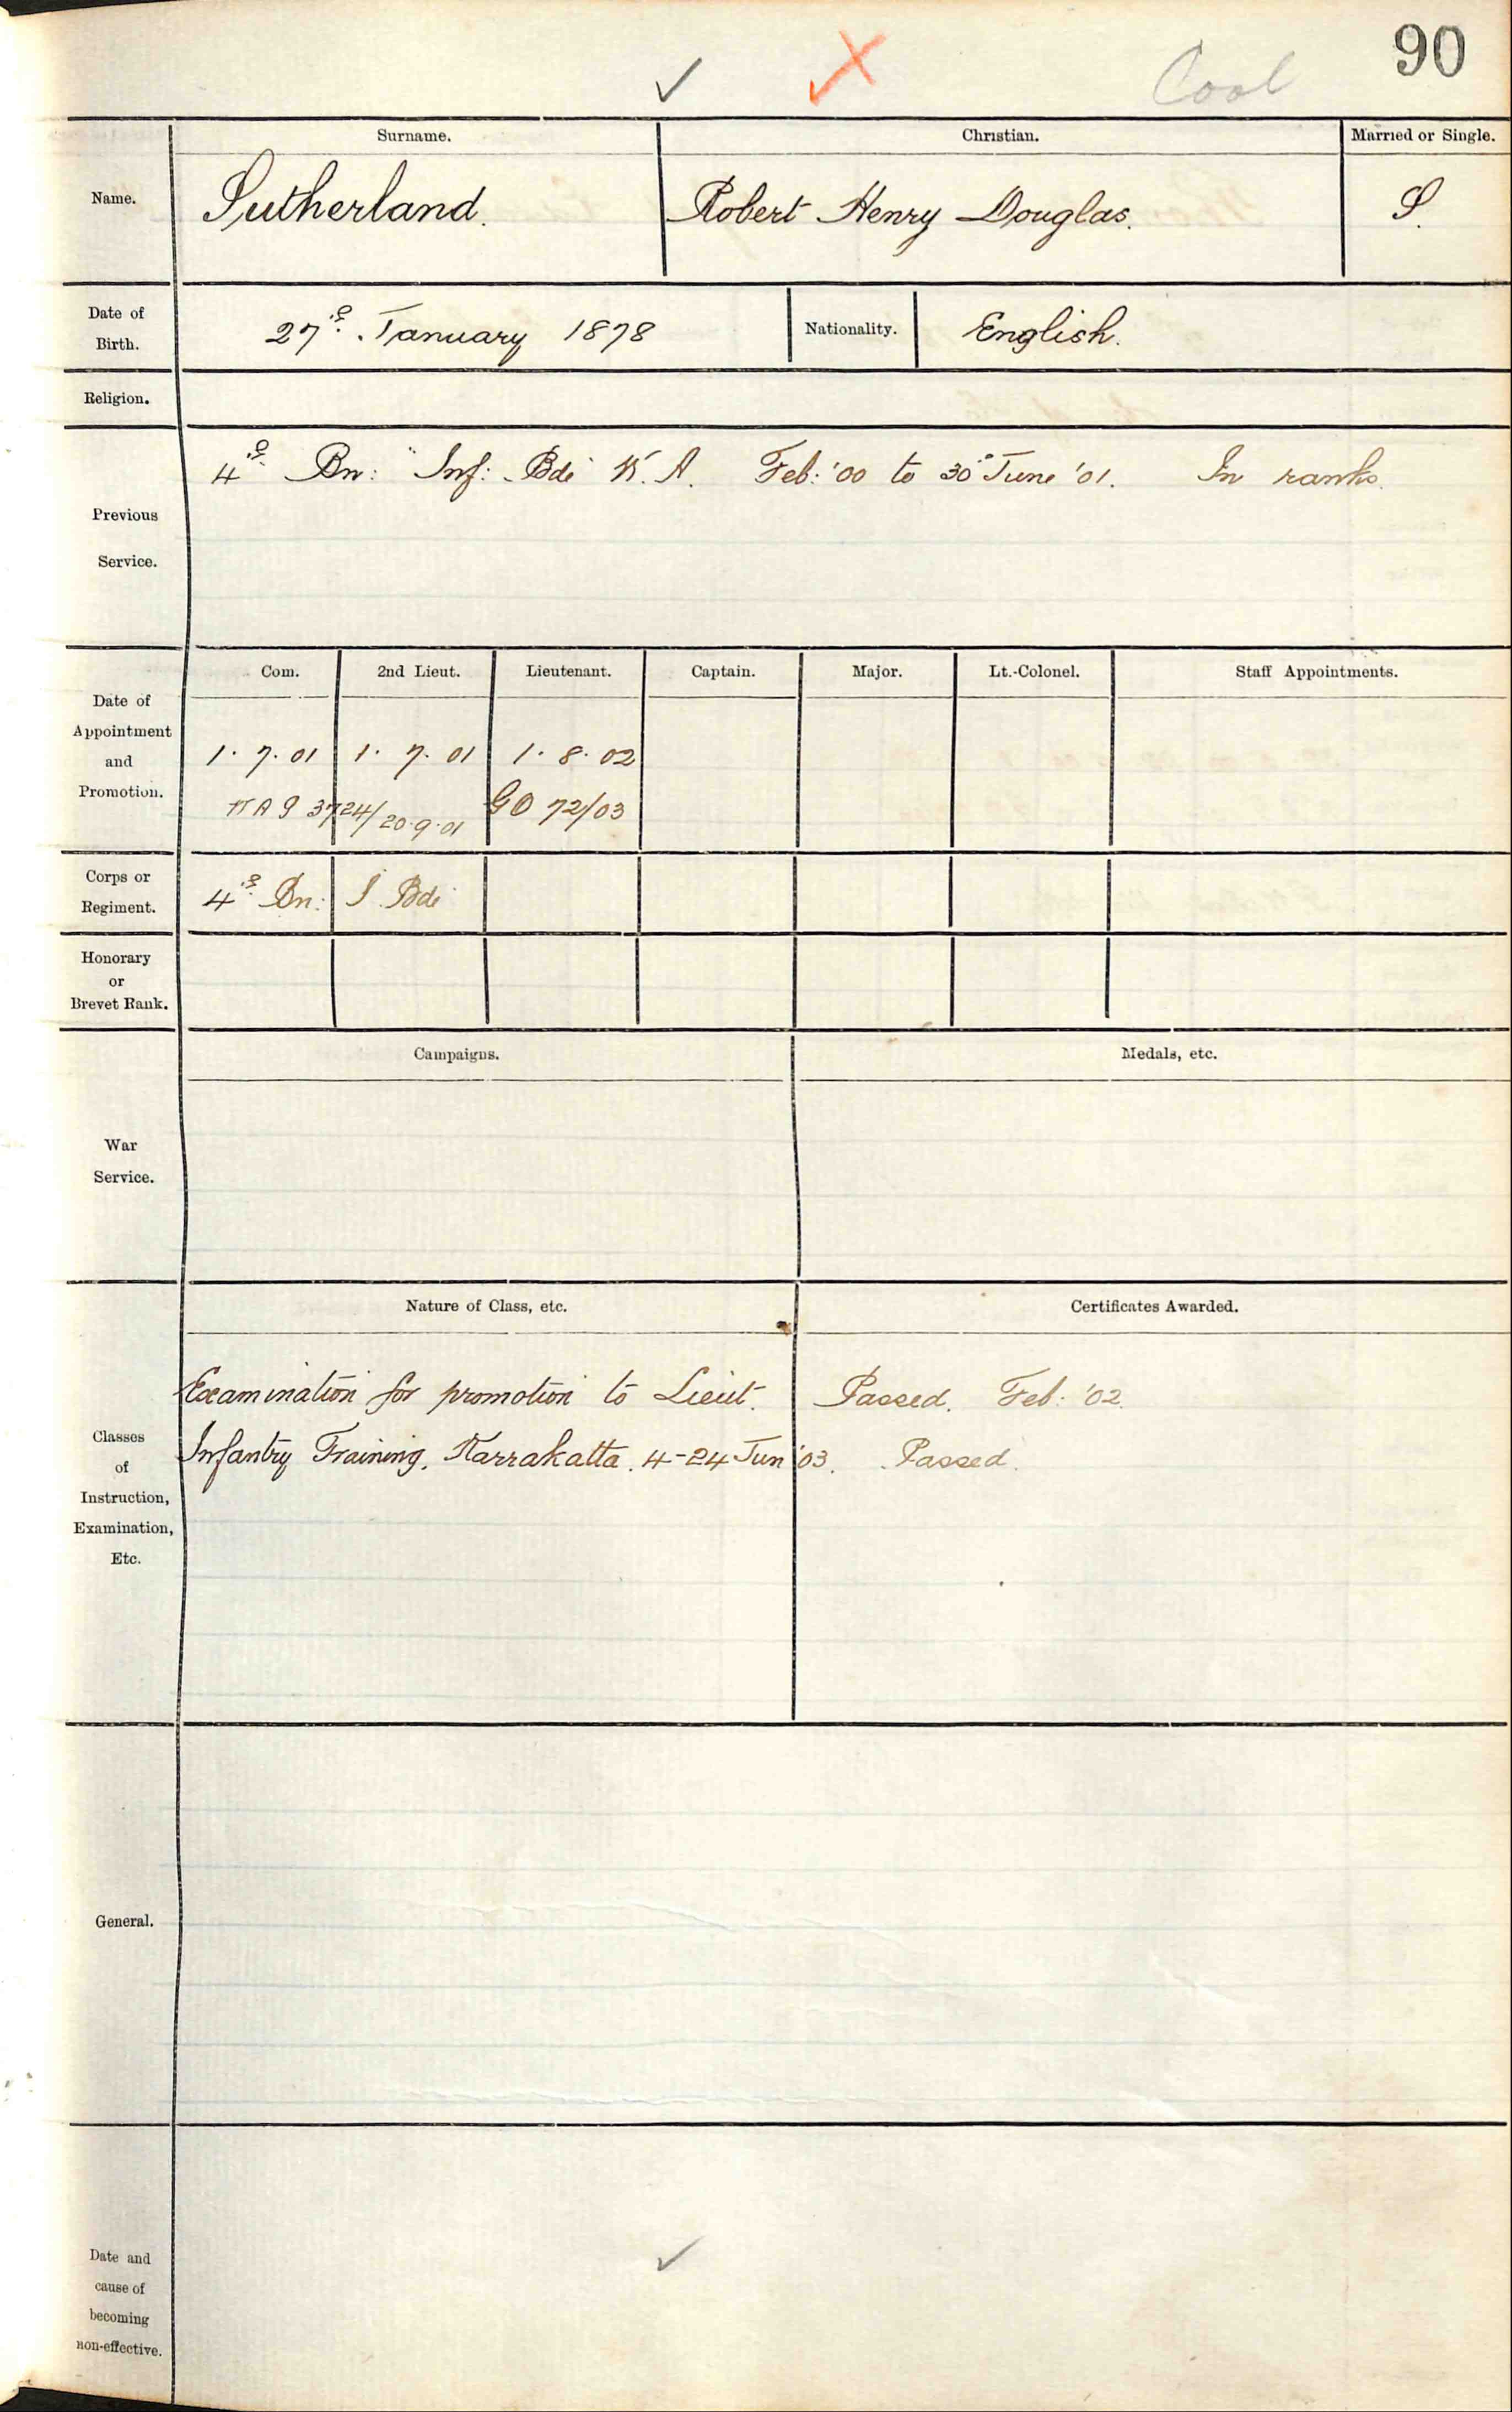 90
Cool
Surname. Christian. Married or Single.
Name. Sutherland. Robert Henry Douglas. S.
Date of Birth. 27th. January 1878 Nationality. English.
Religion.
Previous Service. 4th Bn: Inf: Bde W. A. Feb: '00 to 30th June '01. In ranks.
Com. 2nd Lieut. Lieutenant. Captain. Major. Lt.-Colonel. Staff Appointments.
Date of Appointment and Promotion. 1. 7. 01 1. 7. 01 1. 8. 02
3724/20.9.01 GO 72/03
Corps or Regiment. 4th Bn: I. Bde
Honorary or Brevet Rank.
Campaigns. Medals, etc.
War Service.
Nature of Class, etc. Certificates Awarded.
Classes of Instruction, Examination, Etc.
Examination for promotion to Lieut. Passed. Feb: '02.
Infantry Training, Karrakatta. 4-24 Jun '03. Passed.
General.
Date and cause of becoming non-effective.